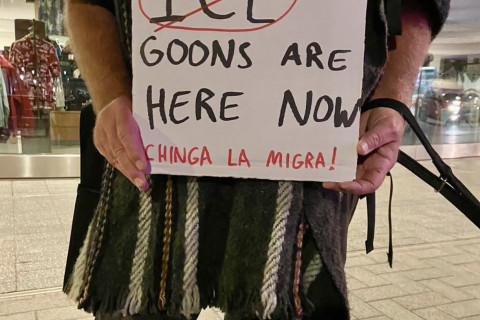 ICE
GOONS ARE
HERE NOW
CHINGA LA MIGRA!